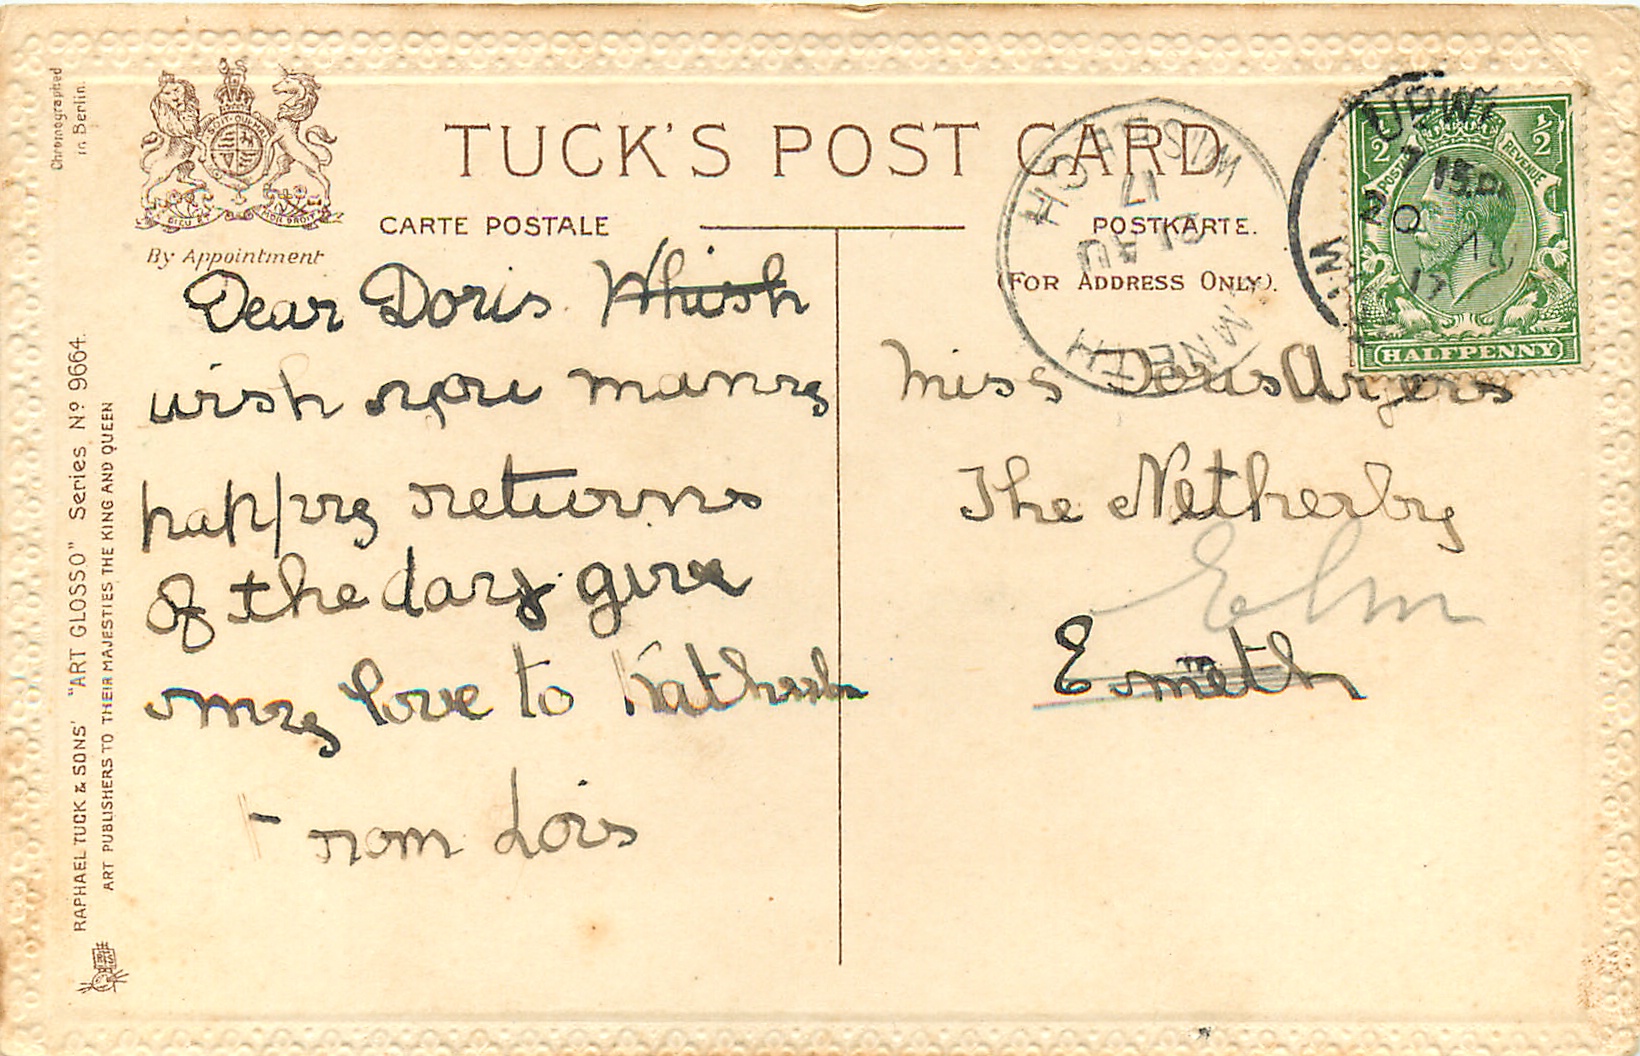 Chromographed
in Berlin.
DIEU ET MON DROIT
By Appointment
TUCK'S POST CARD
CARTE POSTALE
POSTKARTE.
(FOR ADDRESS ONLY).
RAPHAEL TUCK & SONS' "ART GLOSSO" Series Nº 9664.
ART PUBLISHERS TO THEIR MAJESTIES THE KING AND QUEEN
Dear Doris Whish
wish you many
happy returns
of the day give
my love to
from Lois
WISBECH
17
21 AU
EMNETH
UPW
7 15 P
20
17
1/2
1/2
POSTAGE
REVENUE
HALFPENNY
Miss Doris Ayers
The Netherby
Elm
Emneth